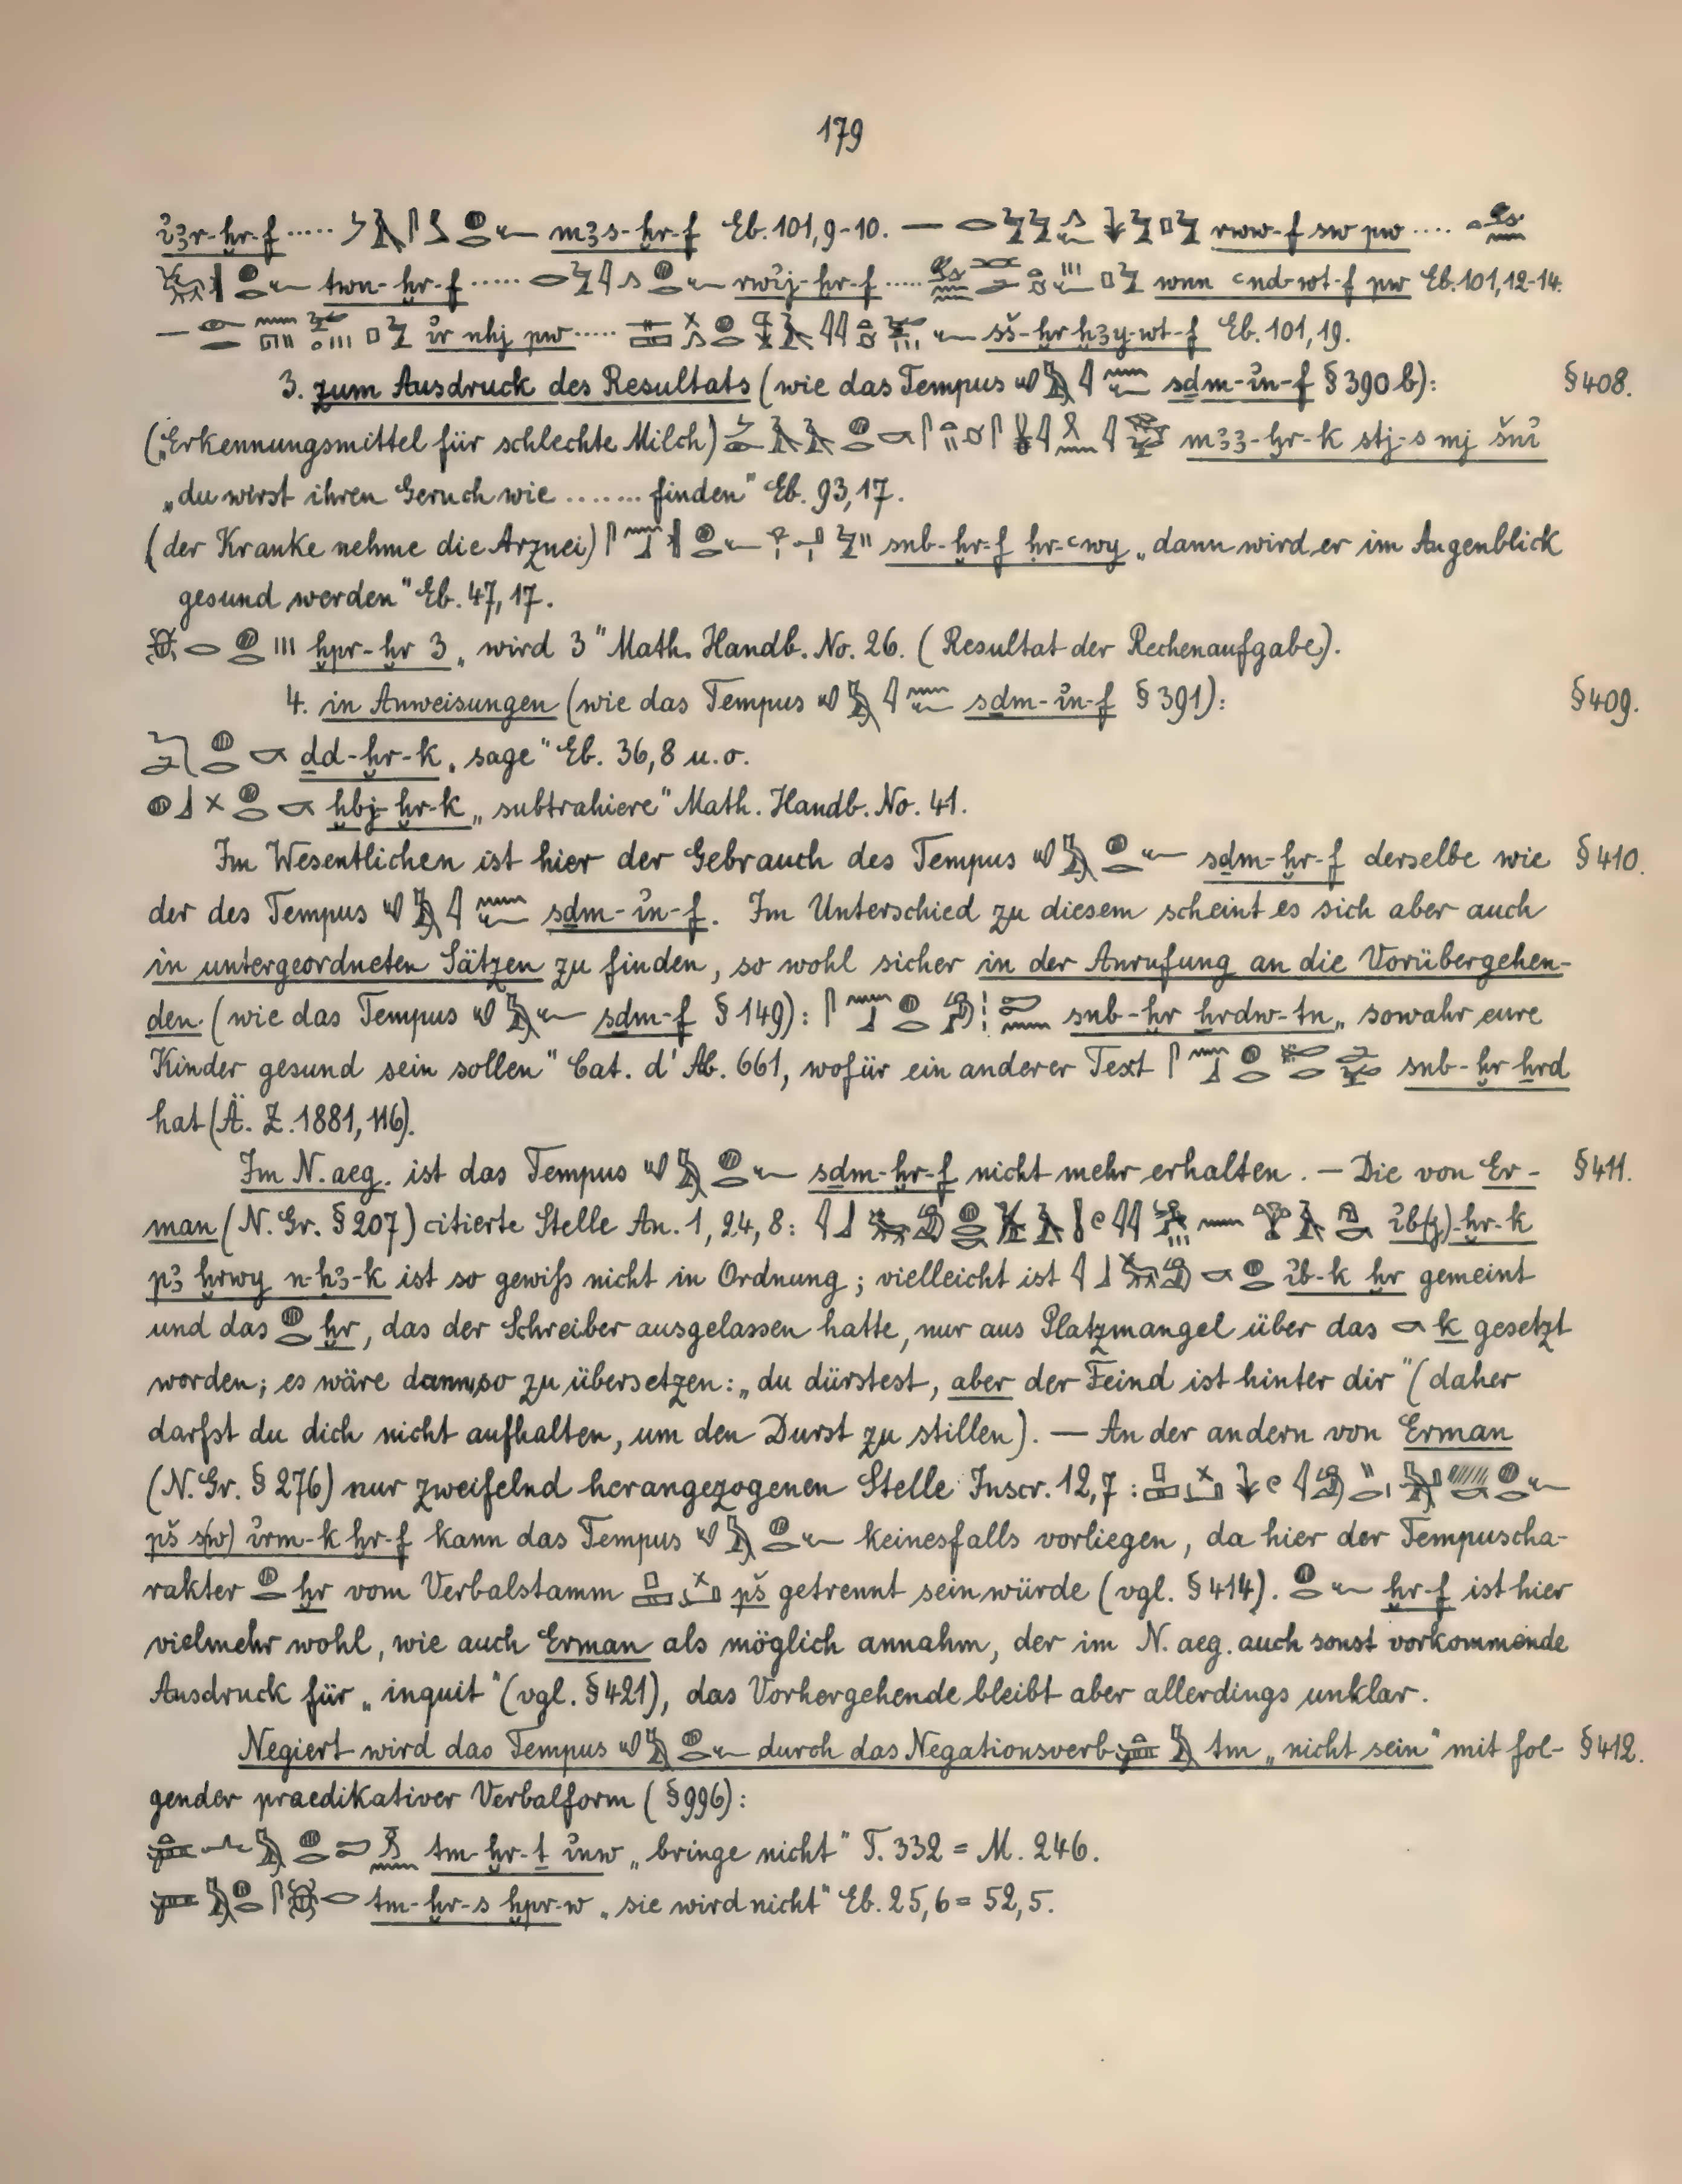 179
i̓ȝr-ḫr-f ..... mȝs-ḫr-f Eb. 101, 9-10. — rww-f sw pw ....
twn-ḫr-f ..... rwi̓j-ḫr-f ..... wnn ꜥnd-wt-f pw Eb. 101, 12-14.
— i̓r nhj pw ..... sš-ḫr ḥȝy-wt-f Eb. 101, 19.
3. zum Ausdruck des Resultats (wie das Tempus sḏm-i̓n-f § 390 b): § 408.
(„Erkennungsmittel für schlechte Milch) mȝȝ-ḫr-k stj-s mj šni̓
„du wirst ihren Geruch wie ....... finden" Eb. 93, 17.
(der Kranke nehme die Arznei) snb-ḫr-f ḥr-ꜥwy „dann wird er im Augenblick
gesund werden" Eb. 47, 17.
ḫpr-ḫr 3 „wird 3" Math. Handb. No. 26. (Resultat der Rechenaufgabe).
4. in Anweisungen (wie das Tempus sḏm-i̓n-f § 391): § 409.
ḏd-ḫr-k „sage" Eb. 36, 8 u. o.
ḫbj-ḫr-k „subtrahiere" Math. Handb. No. 41.
Im Wesentlichen ist hier der Gebrauch des Tempus sḏm-ḫr-f derselbe wie § 410.
der des Tempus sḏm-i̓n-f. Im Unterschied zu diesem scheint es sich aber auch
in untergeordneten Sätzen zu finden, so wohl sicher in der Anrufung an die Vorübergehen-
den (wie das Tempus sḏm-f § 149): snb-ḫr ẖrdw-tn „sowahr eure
Kinder gesund sein sollen" Cat. d'Ab. 661, wofür ein anderer Text snb-ḫr ẖrd
hat (Ä. Z. 1881, 116).
Im N. aeg. ist das Tempus sḏm-ḫr-f nicht mehr erhalten. — Die von Er- § 411.
man (N. Gr. § 207) citierte Stelle An. 1, 24, 8: i̓b(j)-ḫr-k
pȝ ḫrwy n-ḥȝ-k ist so gewiß nicht in Ordnung; vielleicht ist i̓b-k ḫr gemeint
und das ḫr, das der Schreiber ausgelassen hatte, nur aus Platzmangel über das k gesetzt
worden; es wäre dann so zu übersetzen: „du dürstest, aber der Feind ist hinter dir" (daher
darfst du dich nicht aufhalten, um den Durst zu stillen). — An der andern von Erman
(N. Gr. § 276) nur zweifelnd herangezogenen Stelle Inscr. 12, 7:
pš s(w) i̓rm-k ḫr-f kann das Tempus keinesfalls vorliegen, da hier der Tempuscha-
rakter ḫr vom Verbalstamm pš getrennt sein würde (vgl. § 414). ḫr-f ist hier
vielmehr wohl, wie auch Erman als möglich annahm, der im N. aeg. auch sonst vorkommende
Ausdruck für „inquit" (vgl. § 421), das Vorhergehende bleibt aber allerdings unklar.
Negiert wird das Tempus durch das Negationsverb tm „nicht sein" mit fol- § 412.
gender praedikativer Verbalform (§ 996):
tm-ḫr-ṯ i̓nw „bringe nicht" T. 332 = M. 246.
tm-ḫr-s ḫpr-w „sie wird nicht" Eb. 25, 6 = 52, 5.